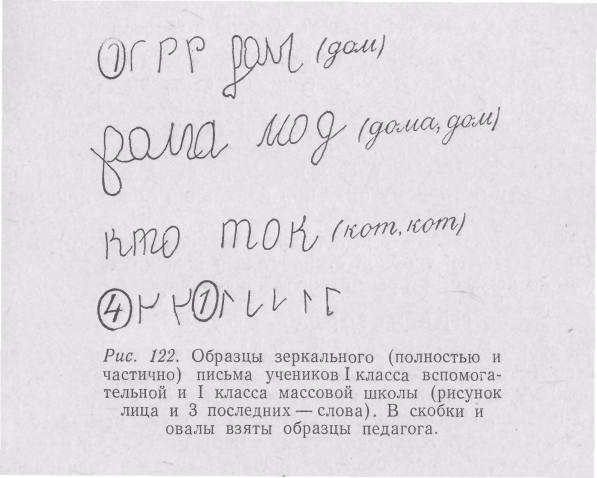 1 (дом)
мод (дома, дом)
кто ток (кот, кот)
4 1
Рис. 122. Образцы зеркального (полностью и
частично) письма учеников I класса вспомога-
тельной и I класса массовой школы (рисунок
лица и 3 последних — слова). В скобки и
овалы взяты образцы педагога.